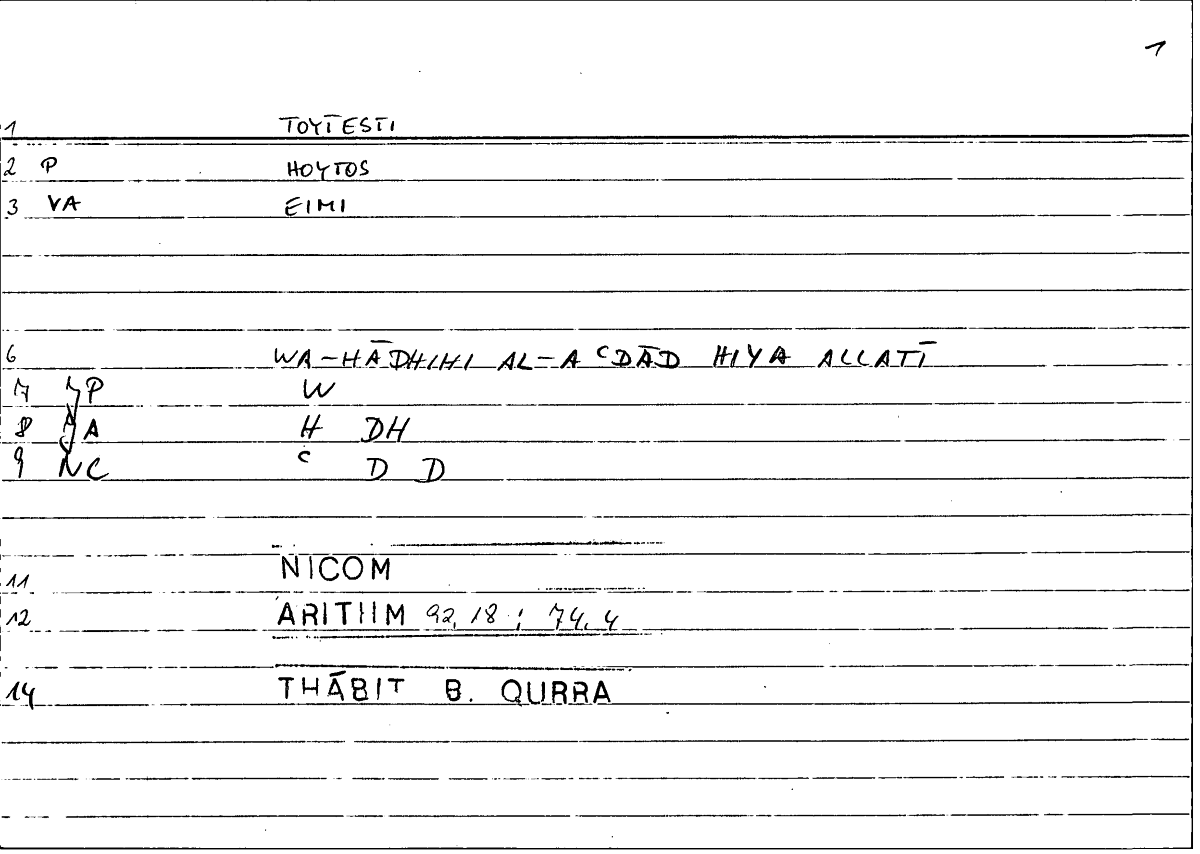 1
1 TOYTESTI
2 P HOYTOS
3 VA EIMI
6 WA-HĀDHIHI AL-AʿDĀD HIYA ALLATĪ
7 P W
8 A H DH
9 NC ʿ D D
NICOM
11
12 ARITHM 92,18 ; 74,4
14 THĀBIT B. QURRA